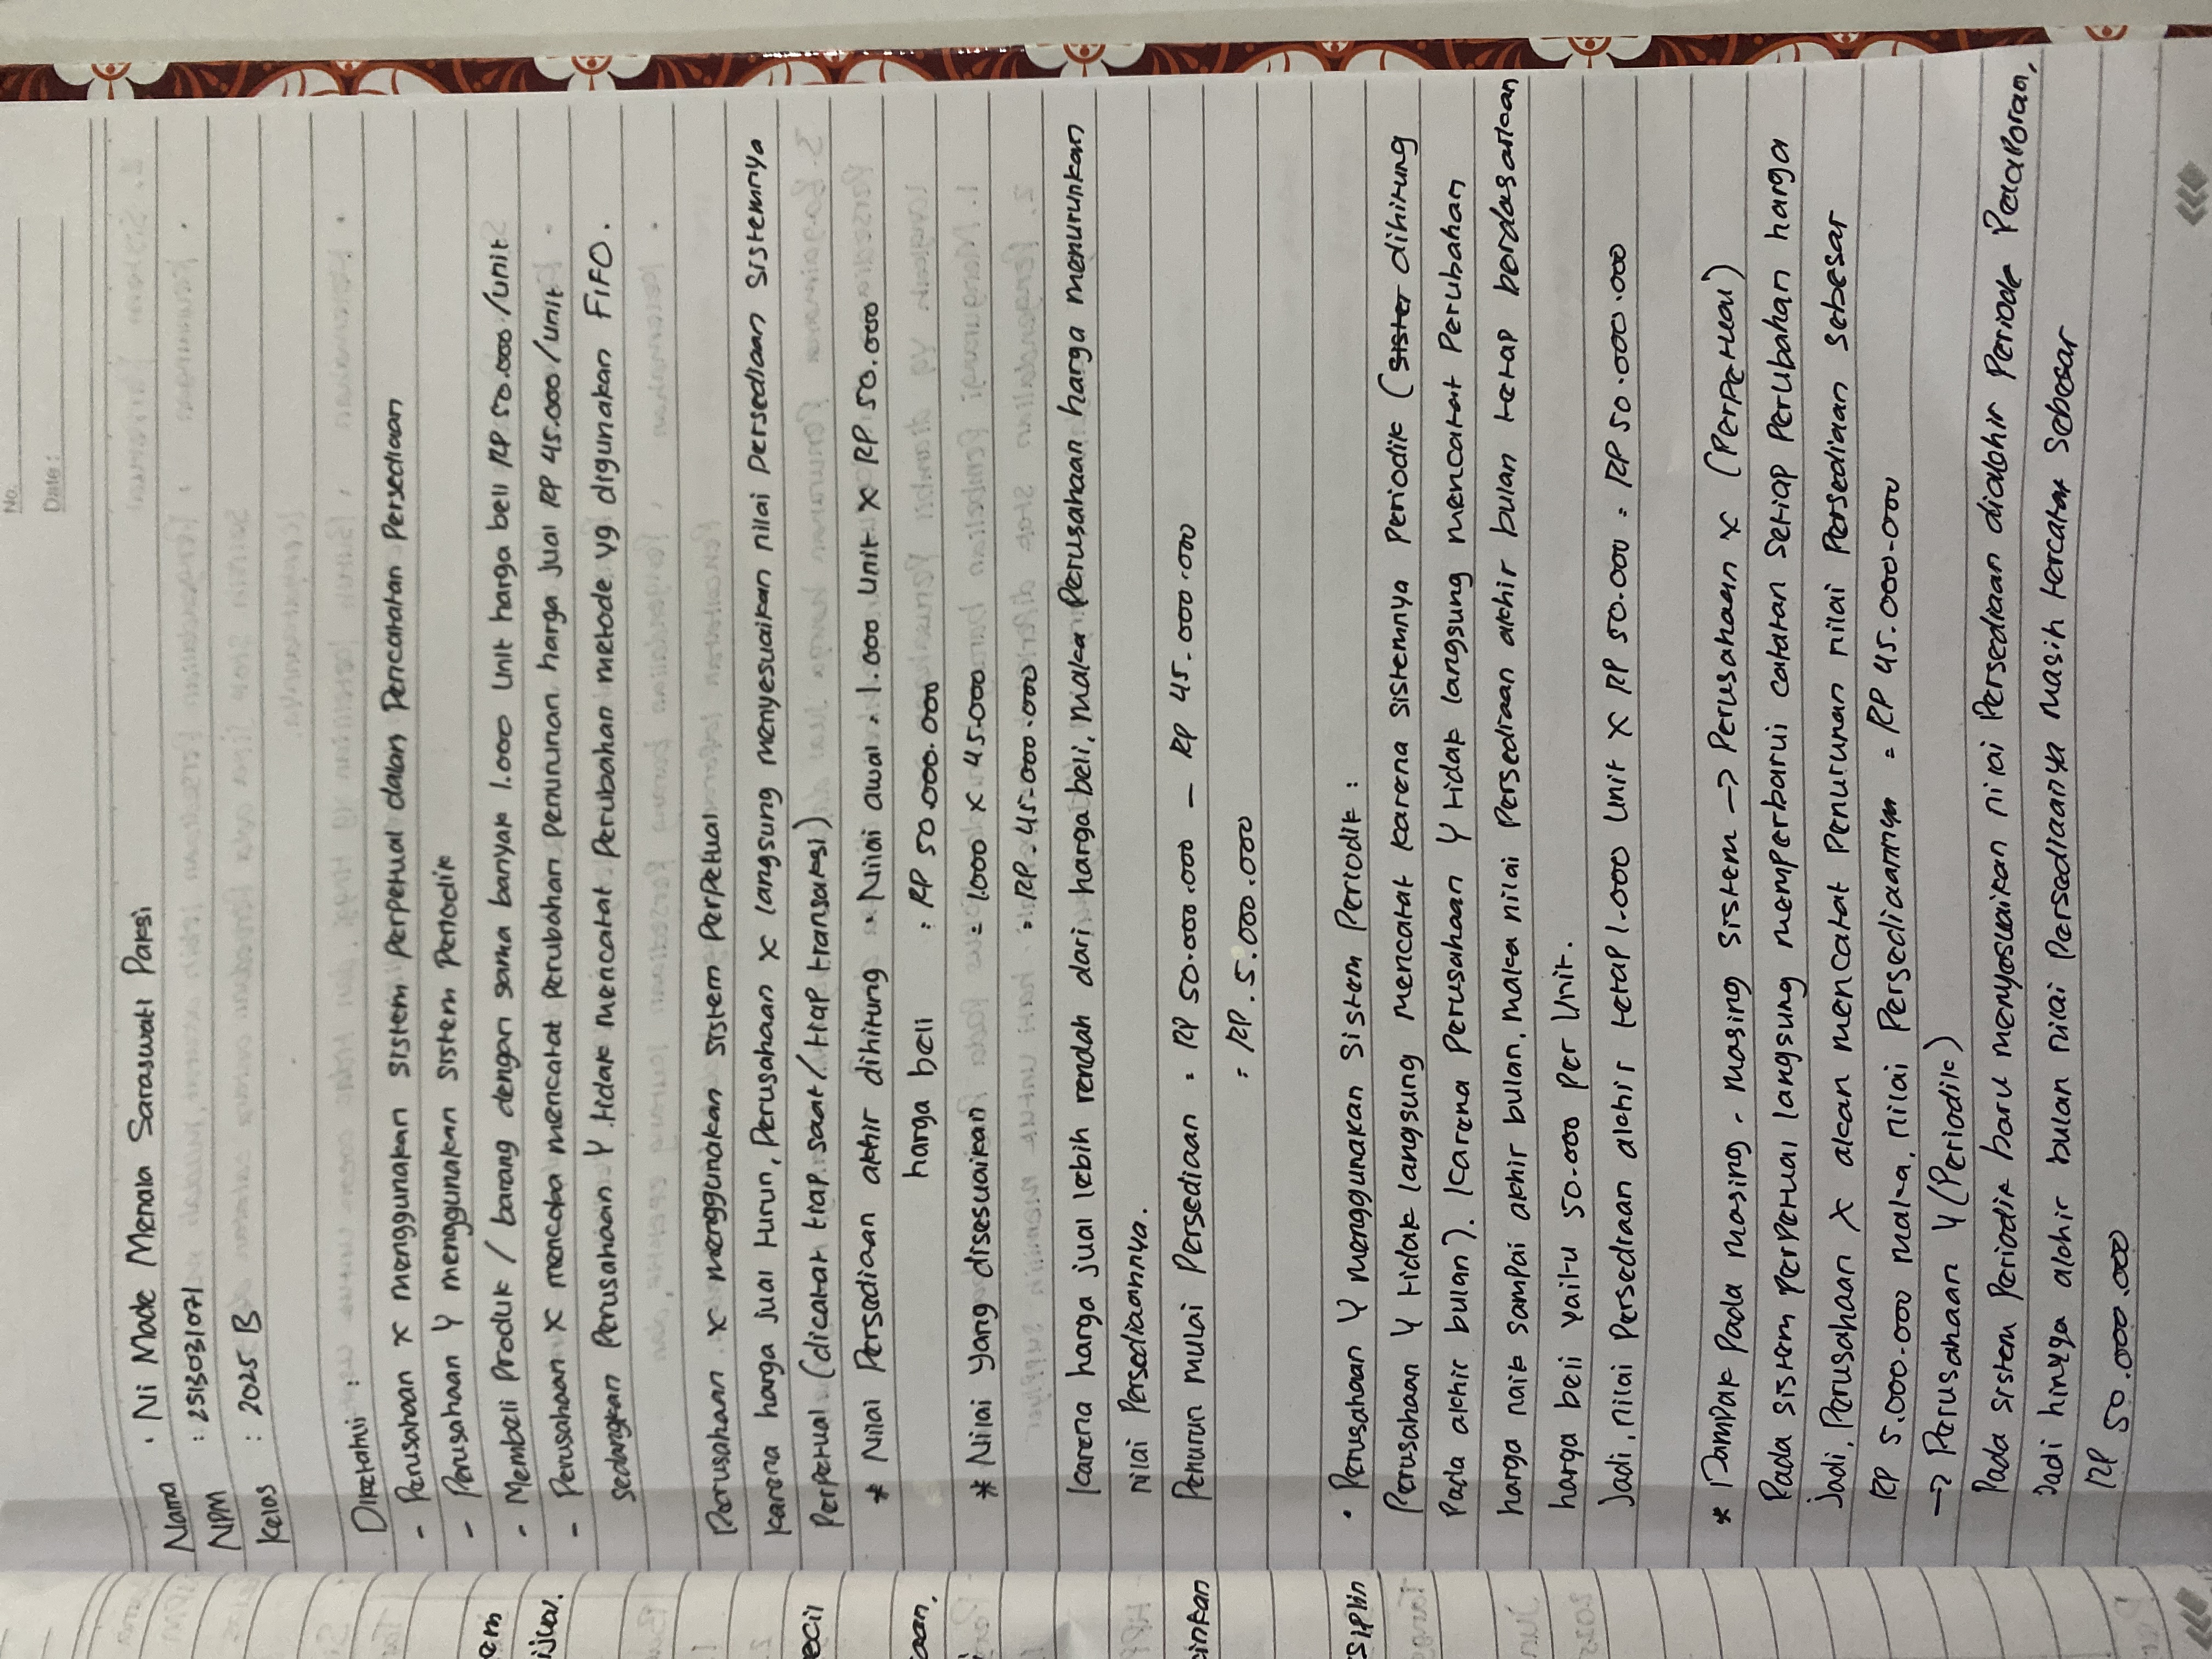 No.
Date:
Nama : Ni Made Menala Saraswati Paksi
NPM : 2513031071
Kelas : 2025 B
Diketahui :
- Perusahaan X menggunakan sistem perpetual dalam Pencatatan Persediaan
- Perusahaan Y menggunakan sistem Periodik
- Membeli Produk / barang dengan sama banyak 1.000 Unit harga beli RP 50.000 /unit
- Perusahaan X mencoba mencatat perubahan penurunan harga jual RP 45.000 /unit
sedangkan Perusahaan Y tidak mencatat Perubahan metode yg digunakan FIFO.
Perusahaan X menggunakan sistem Perpetual
karena harga jual turun, Perusahaan X langsung menyesuaikan nilai Persediaan sistemnya
Perpetual (dicatat tiap saat / tiap transaksi)
* Nilai Persediaan akhir dihitung = Nilai awal = 1.000 Unit X RP 50.000
harga beli : RP 50.000.000
* Nilai yang disesuaikan = 1.000 X 45.000
= RP. 45.000.000
karena harga jual lebih rendah dari harga beli, maka Perusahaan harga menurunkan
nilai Persediaannya.
Penurun nulai Persediaan = RP 50.000.000 – RP 45.000.000
= RP. 5.000.000
• Perusahaan Y menggunakan Sistem Periodik :
Perusahaan Y tidak langsung mencatat karena sistemnya Periodik (sister dihitung
Pada akhir bulan). karena Perusahaan Y tidak langsung mencatat Perubahan
harga naik sampai akhir bulan, maka nilai Persediaan akhir bulan tetap berdasarkan
harga beli yaitu 50.000 Per Unit.
Jadi, nilai Persediaan akhir tetap 1.000 Unit X RP 50.000 = RP 50.000.000
* Dampak Pada masing - masing sistem -> Perusahaan X (Perpetual)
Pada sistem perpetual langsung memperbarui catatan setiap Perubahan harga
Jadi, Perusahaan X akan mencatat Penurunan nilai Persediaan sebesar
RP 5.000.000 maka, nilai Persediaannya = RP 45.000.000
-> Perusahaan Y (Periodik)
Pada sistem Periodik baru menyesuaikan nilai Persediaan diakhir Periode Pelaporan,
Jadi hingga akhir bulan nilai Persediaanya masih tercatat sebesar
RP 50.000.000
cinkan
siplin